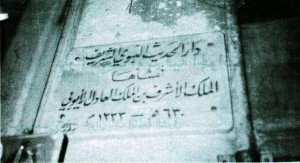 دار الحديث النبوي الشريف
أنشأها
الملك الأشرف بن الملك العادل الأيوبي
٦٣٠ هـ — ١٢٣٣ م